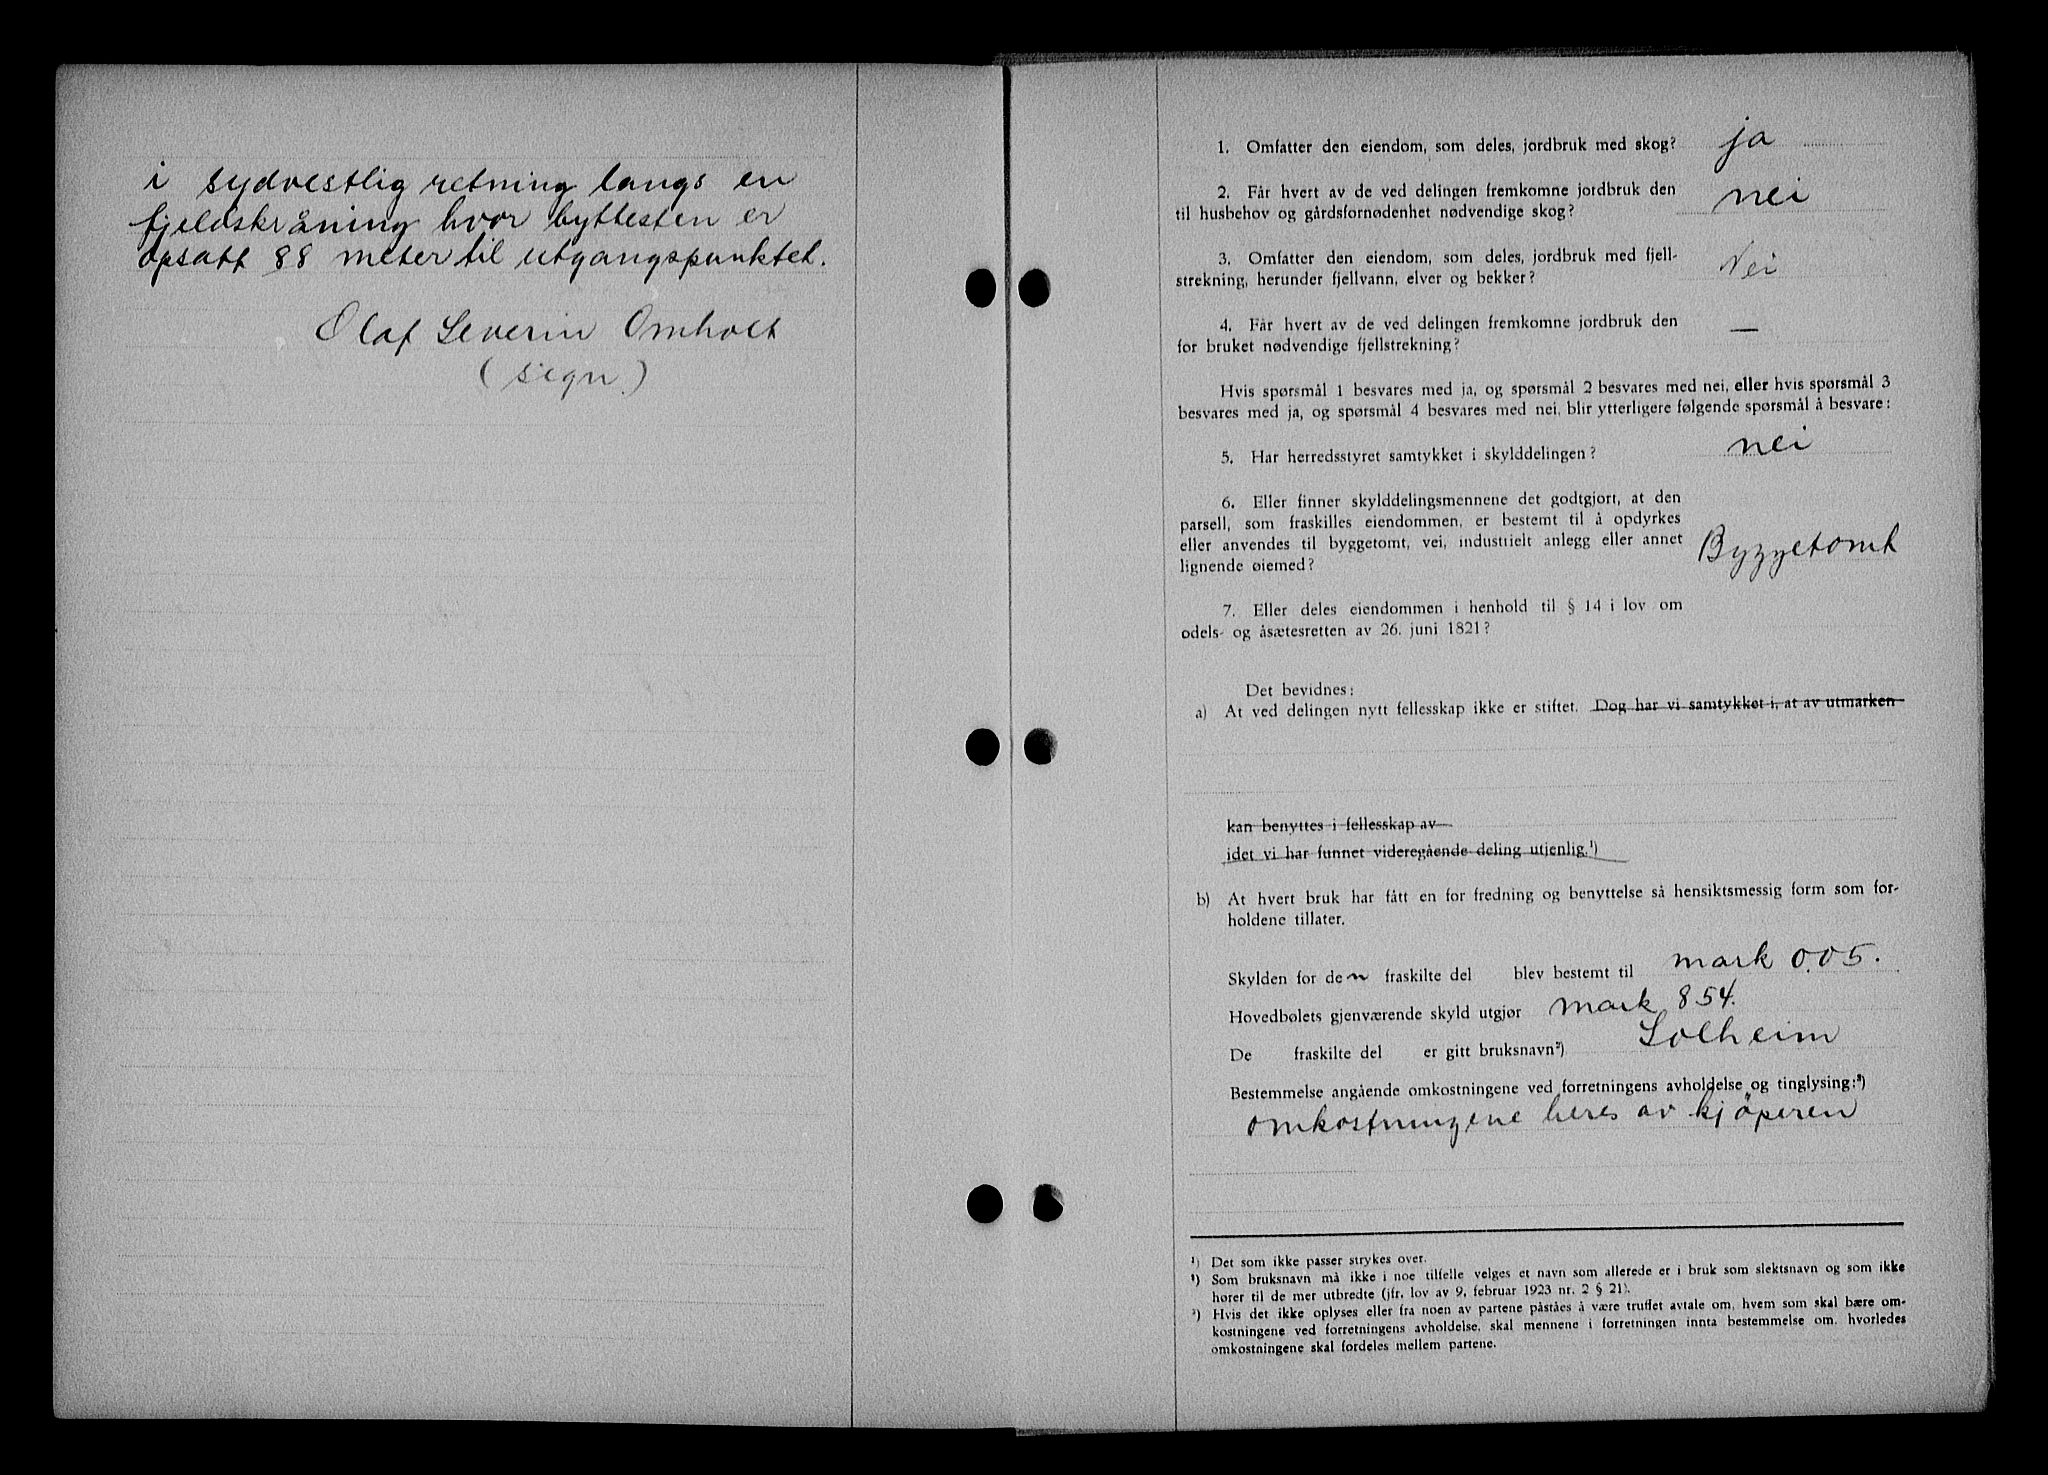 i sydvestlig retning langs en
fjeldskråning hvor byttesten er
opsatt 88 meter til utgangspunktet.
Olaf Severin Omholt
(sign.)
1. Omfatter den eiendom, som deles, jordbruk med skog? ja
2. Får hvert av de ved delingen fremkomne jordbruk den
til husbehov og gårdsfornødenhet nødvendige skog? nei
3. Omfatter den eiendom, som deles, jordbruk med fjell-
strekning, herunder fjellvann, elver og bekker? Nei
4. Får hvert av de ved delingen fremkomne jordbruk den
for bruket nødvendige fjellstrekning? —
Hvis spørsmål 1 besvares med ja, og spørsmål 2 besvares med nei, eller hvis spørsmål 3
besvares med ja, og spørsmål 4 besvares med nei, blir ytterligere følgende spørsmål å besvare:
5. Har herredsstyret samtykket i skylddelingen? nei
6. Eller finner skylddelingsmennene det godtgjort, at den
parsell, som fraskilles eiendommen, er bestemt til å opdyrkes
eller anvendes til byggetomt, vei, industrielt anlegg eller annet
lignende øiemed? Byggetomt
7. Eller deles eiendommen i henhold til § 14 i lov om
odels- og åsætesretten av 26. juni 1821?
Det bevidnes:
a) At ved delingen nytt fellesskap ikke er stiftet. Dog har vi samtykket i, at av utmarken
kan benyttes i fellesskap av
idet vi har funnet videregående deling utjenlig.¹)
b) At hvert bruk har fått en for fredning og benyttelse så hensiktsmessig form som for-
holdene tillater.
Skylden for den fraskilte del blev bestemt til mark 0.05.
Hovedbølets gjenværende skyld utgjør mark 854.
De fraskilte del er gitt bruksnavn²) Solheim
Bestemmelse angående omkostningene ved forretningens avholdelse og tinglysing:³)
omkostningene beres av kjøperen
¹) Det som ikke passer strykes over.
²) Som bruksnavn må ikke i noe tilfelle velges et navn som allerede er i bruk som slektsnavn og som ikke
hører til de mer utbredte (jfr. lov av 9. februar 1923 nr. 2 § 21).
³) Hvis det ikke oplyses eller fra noen av partene påståes å være truffet avtale om, hvem som skal bære om-
kostningene ved forretningens avholdelse, skal mennene i forretningen innta bestemmelse om, hvorledes
omkostningene skal fordeles mellem partene.